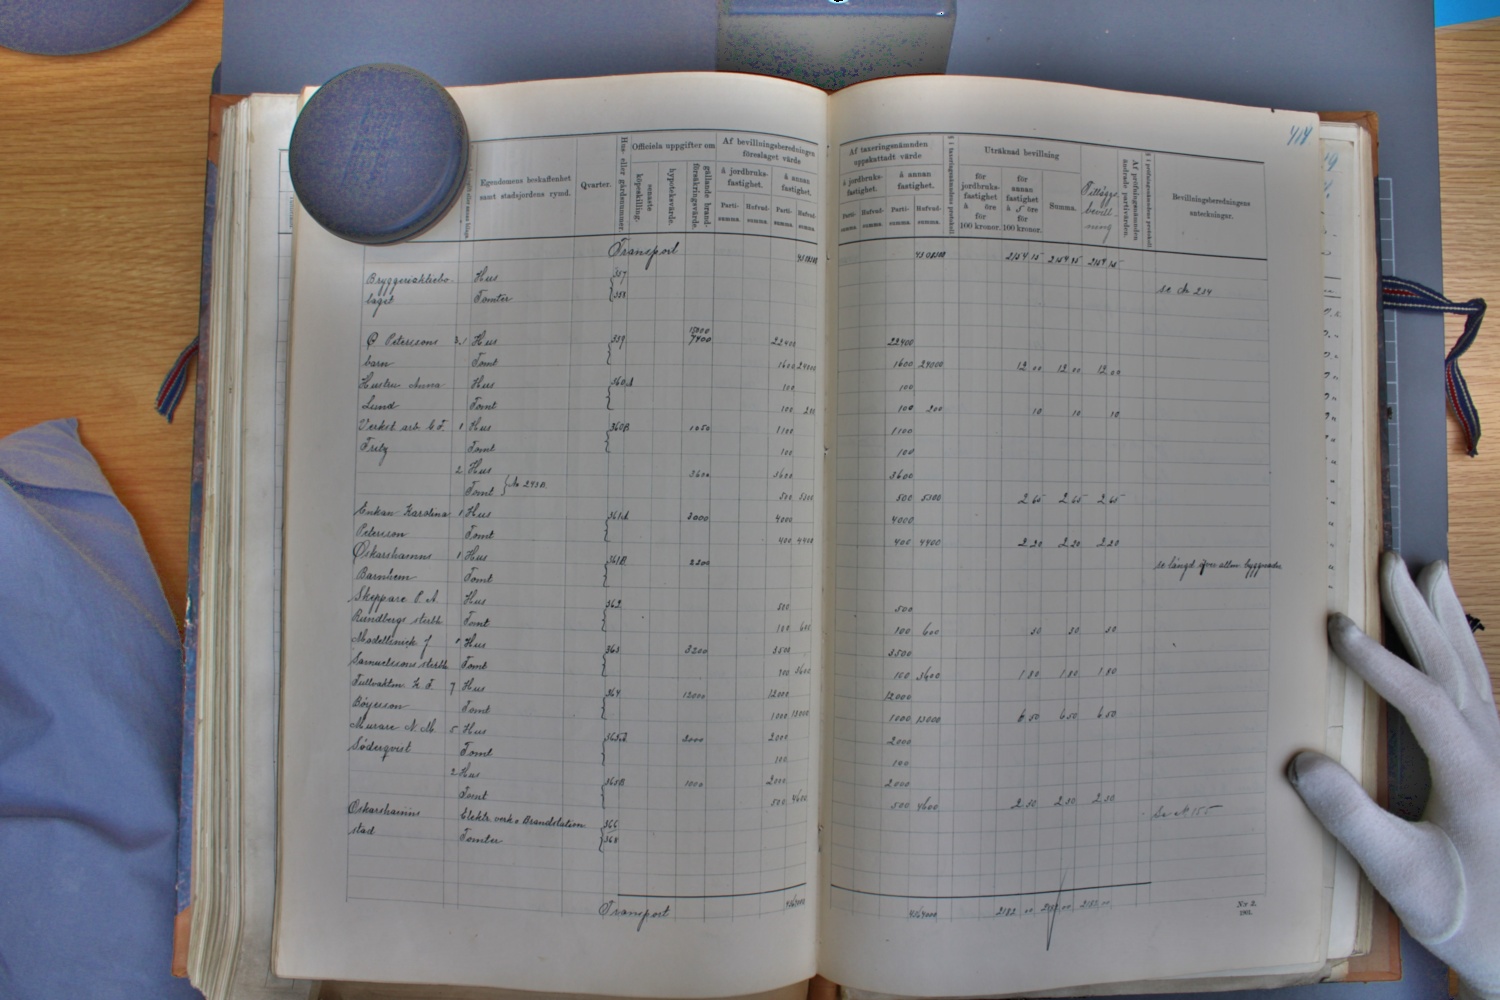 414
Egendomens beskaffenhet samt stadsjordens rymd.
Quarter.
Hus- eller gårdsnummer.
Officiela uppgifter om
senaste köpeskilling.
hypoteksvärde.
gällande brandförsäkringsvärde.
Af bevillningsberedningen föreslaget värde
å jordbruksfastighet.
å annan fastighet.
Partisumma.
Hufvudsumma.
Partisumma.
Hufvudsumma.
Af taxeringsnämnden uppskattadt värde
å jordbruksfastighet.
å annan fastighet.
Partisumma.
Hufvudsumma.
Partisumma.
Hufvudsumma.
Uträknad bevillning
för jordbruksfastighet à öre för 100 kronor.
för annan fastighet à 5 öre för 100 kronor.
Summa.
Tilläggsbevillning
Af pröfningsnämnden ändrade partivärden.
Bevillningsberedningens anteckningar.
Transport
Bryggeriaktiebo- Hus 357 se No 254
laget Tomter 358
15000
P Peterssons Hus 359 7400 22400 22400
barn Tomt 1600 24000 1600 24000 12 00 12 00 12 00
Hustru Anna Hus 360A 100 100
Lund Tomt 100 200 100 200 10 10 10
Verkst arb C F. 1 Hus 360B 1050 1100 1100
Fritz Tomt 100 100
2 Hus 3600 3600 3600
Tomt No 243B 500 5300 500 5300 2 65 2 65 2 65
Enkan Karolina 1 Hus 361A 3000 4000 4000
Petersson Tomt 400 4400 400 4400 2 20 2 20 2 20
Oskarshamns 1 Hus 361B 2200 se längd öfver allm. byggnader
Barnhem Tomt
Skeppare P A Hus 362 500 500
Rundbergs sterbh Tomt 100 600 100 600 30 30 30
Modellsnick J 1 Hus 363 3200 3500 3500
Samuelssons sterbh Tomt 100 3600 100 3600 1 80 1 80 1 80
Tullvaktm. K F 7 Hus 364 12000 12000 12000
Böjesson Tomt 1000 13000 1000 13000 6 50 6 50 6 50
Murare N. M 5 Hus 365A 2000 2000 2000
Söderqvist Tomt 100 100
2 Hus 365B 1000 2000 2000
Tomt 500 4600 500 4600 2 30 2 30 2 30
Oskarshamns Elektr. verk o Brandstation 366 Se No 155
stad Tomter 368
Transport
Nr 2.